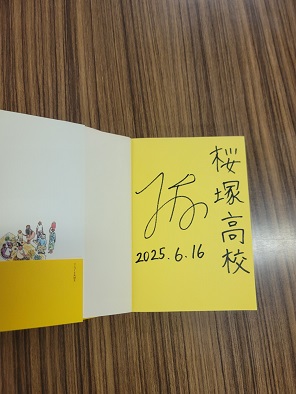 桜塚高校
2025.6.16